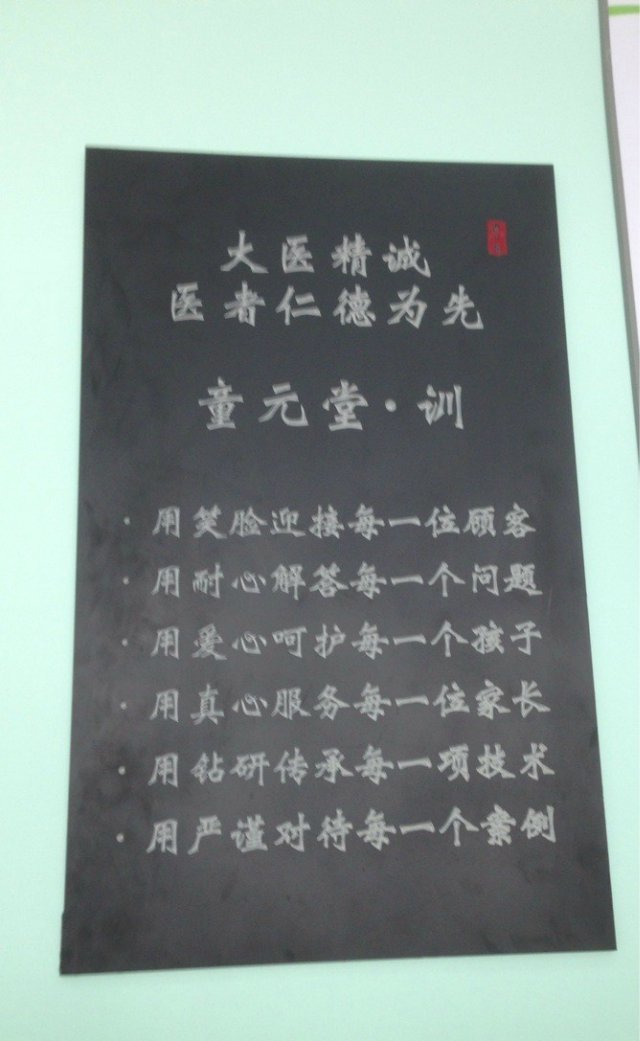 大医精诚
医者仁德为先
童元堂·训
· 用笑脸迎接每一位顾客
· 用耐心解答每一个问题
· 用爱心呵护每一个孩子
· 用真心服务每一位家长
· 用钻研传承每一项技术
· 用严谨对待每一个案例